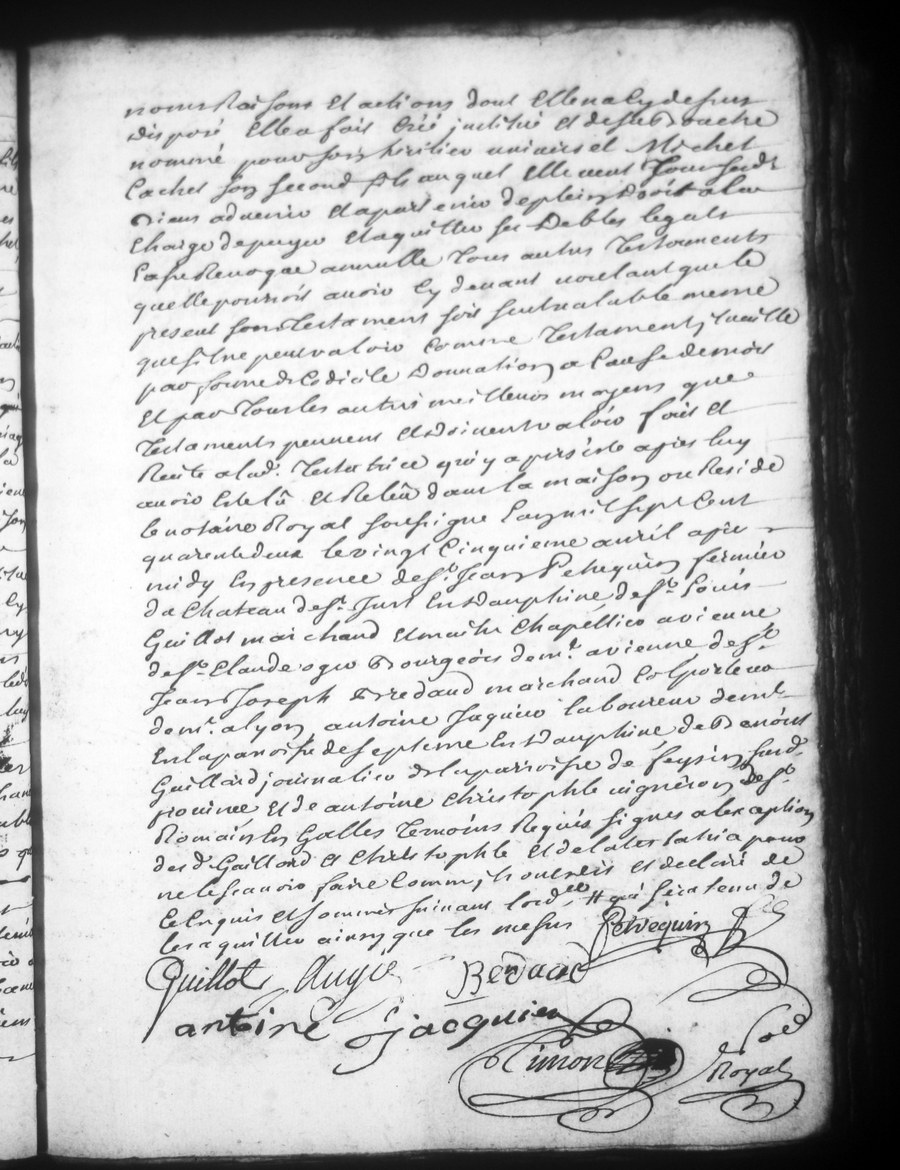 noms Raisons et actions dont Elle na Cy dessus
disposé Elle a fait Créé institué et de sa Bouche
nommé pour son heritier universel Michel
Cachet son second fils auquel Elle veut Tous sesdts
Biens advenir et apartenir de plein Droit a la
Charge de payer et aquitter ses Debtes legats
Casse Revoque annulle Tous autres Testaments
quelle pourroit avoir Cy devant voulant que le
present son Testament soit seul valable meme
que sil ne peut valoir Comme Testament, il vaille
par forme de Codicile Donnation a Cause de mort
Et par Tous les autres meilleurs moyens que
Testaments peuvent et doivent valoir fait et
Recité a lad. Testatrice qui y a persisté apres luy
avoir Esté lû et Relû dans la maison ou Reside
le notaire Royal soussigné Lan mil sept Cent
quarente deux le vingt Cinquieme avril apres
midy En presence de sr. Jean Pehequin fermier
du Chateau de st. Just En Dauphiné de sr. Louis
Guillot marchand et maitre Chapellier a vienne
de sr. Claude ogier Bourgeois demt. a vienne de sr.
Jean Joseph Bredaud marchand Colporteur
demt. a lyon antoine Jaquier laboureur demt.
En la paroisse de septeme En Dauphiné de Benoist
Gaillard journalier de la parroisse de feysin susd.
province et de antoine Christophle vigneron de st.
Romain En Galles Temoins Requis signés a lexception
desd. Gaillard et Christophle et de la testatrice pour
ne le scavoir faire Comme ils ont dit et declaré de
Ce Enquis et sommés suivant lordce # qui sera tenu de
les aquitter ainsy que les mesmes Pehequin
Guillot Augié Bredaud
antoine jacquier
Simon
Royal